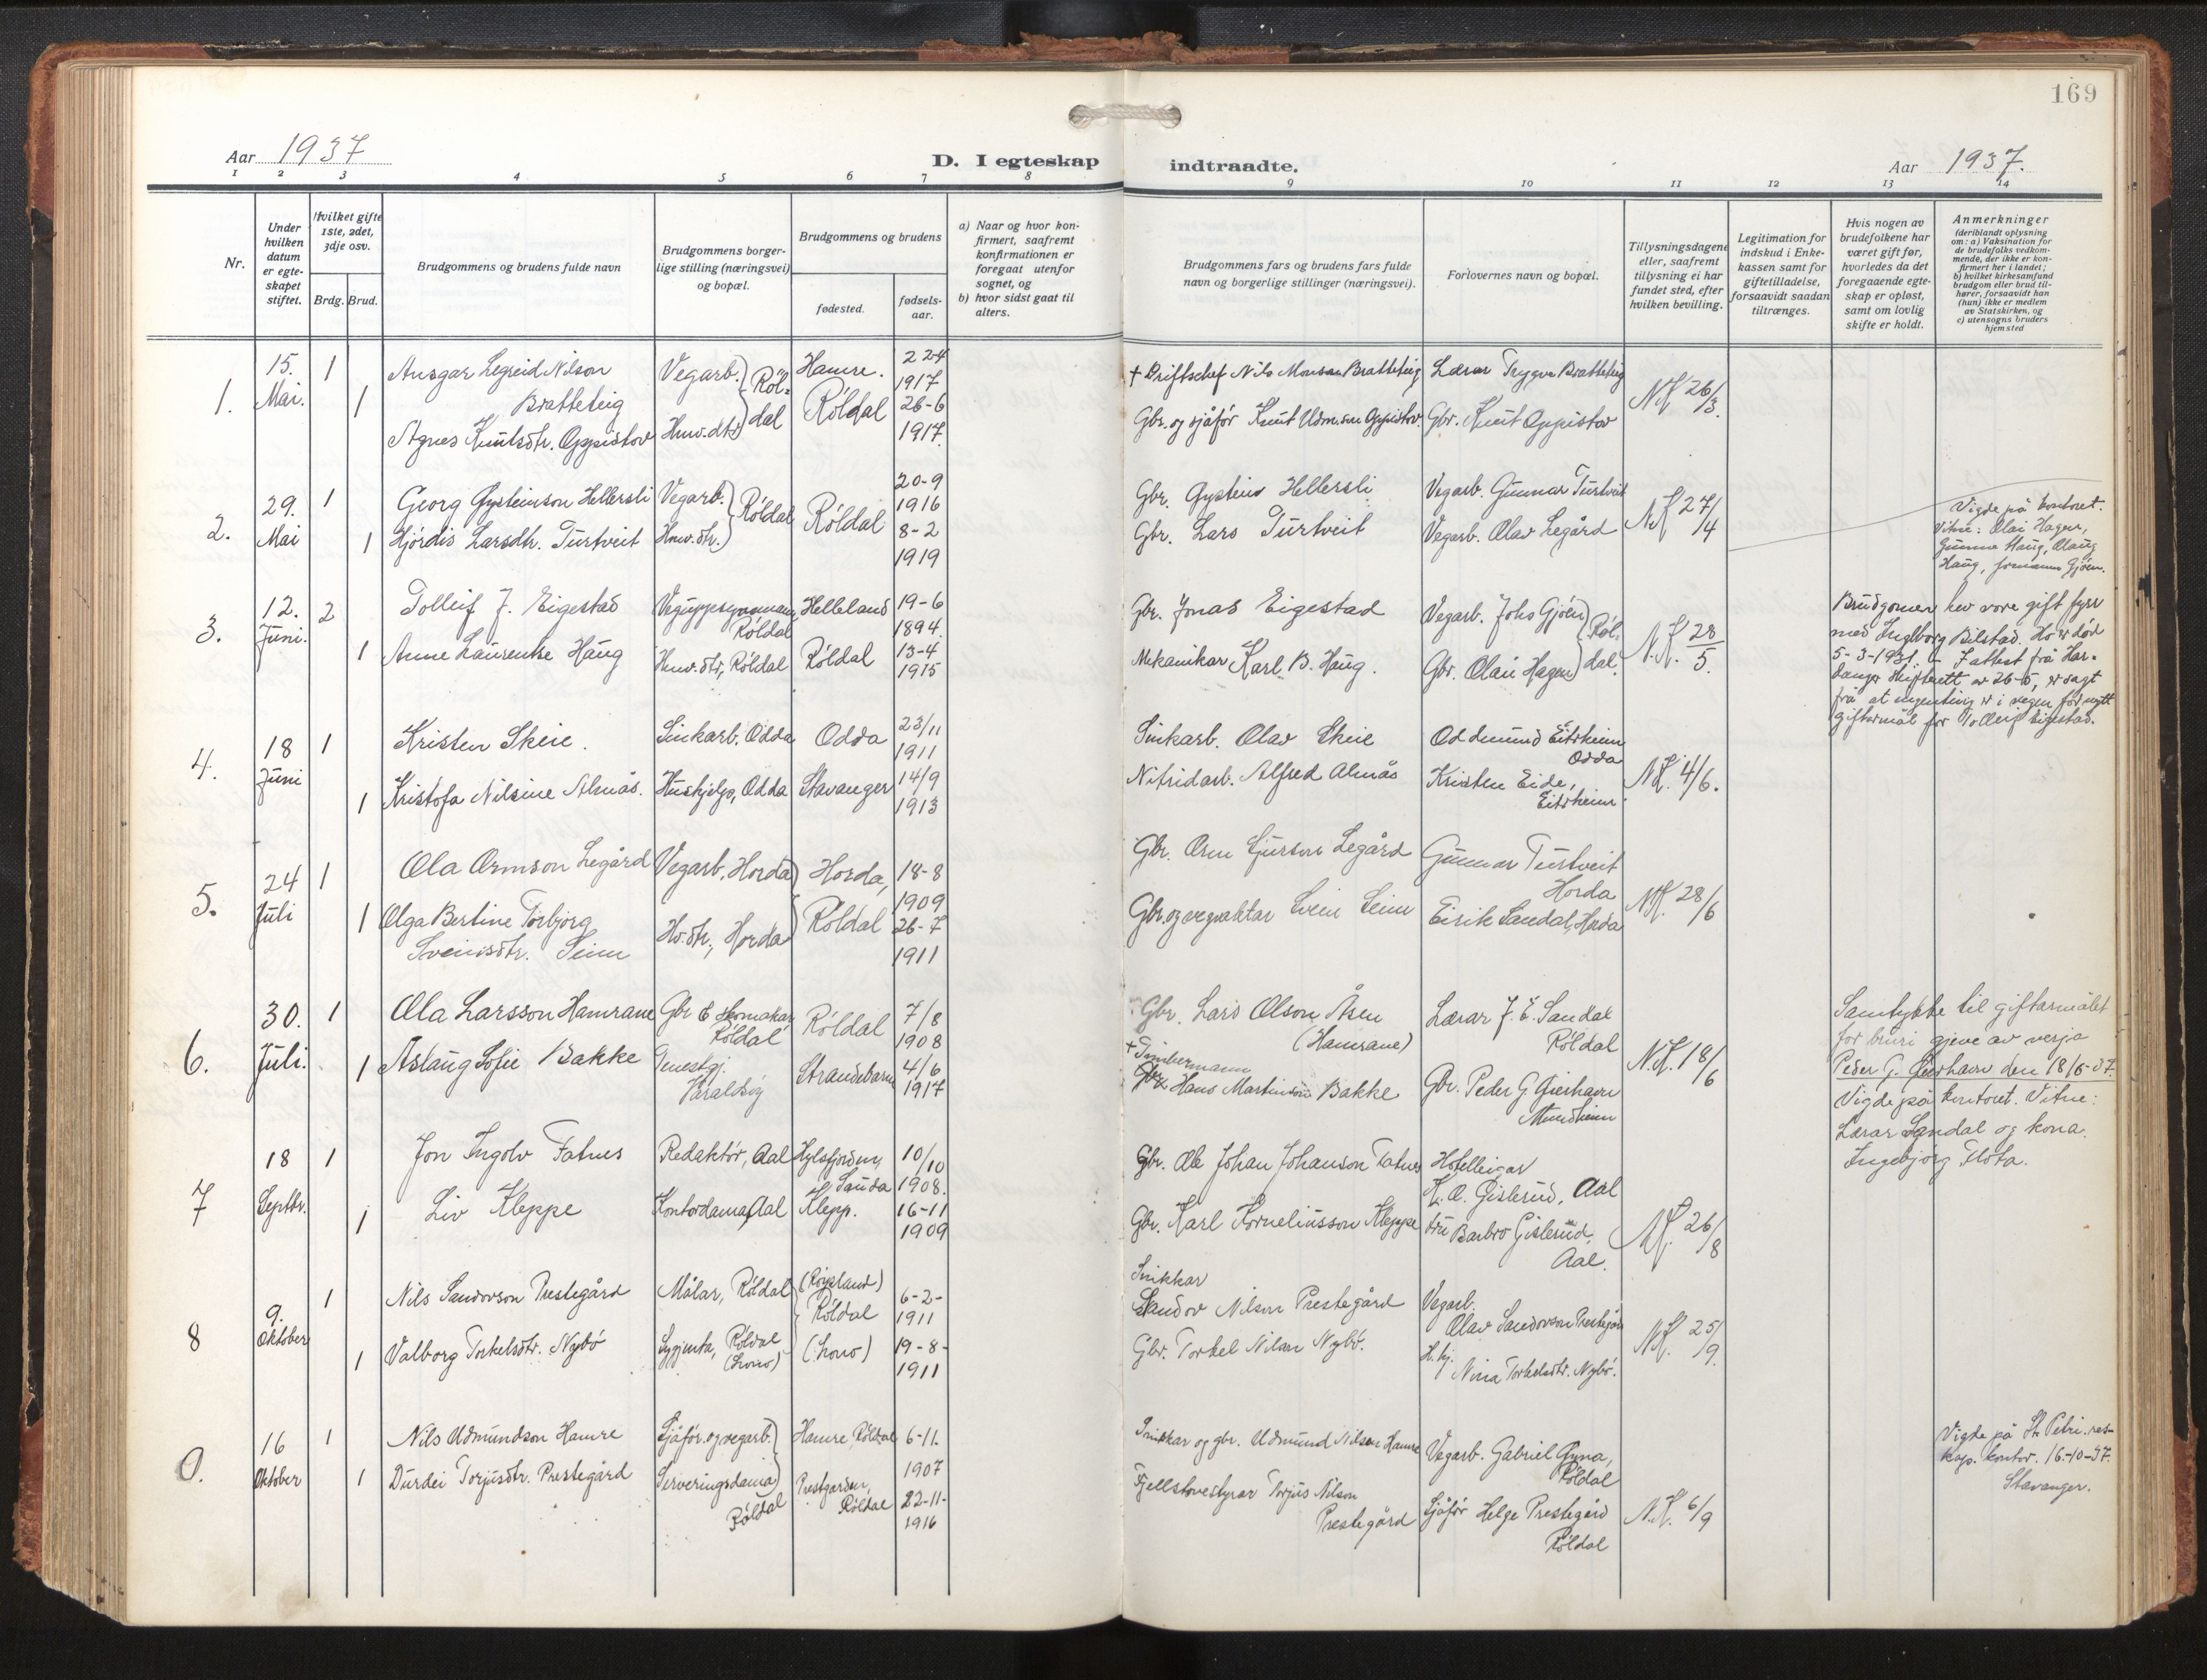 169
Aar 1937
D. I egteskap
indtraadte.
Aar 1937.
1 2 3 4 5 6 7 8
9 10 11 12 13 14
Nr.
Under
hvilken
datum
er egte-
skapet
stiftet.
Hvilket gifte
1ste, 2det,
3dje osv.
Brdg. Brud.
Brudgommens og brudens fulde navn
Brudgommens borger-
lige stilling (næringsvei)
og bopæl.
Brudgommens og brudens
fødested.
fødsels-
aar.
a) Naar og hvor kon-
firmert, saafremt
konfirmationen er
foregaat utenfor
sognet, og
b) hvor sidst gaat til
alters.
Brudgommens fars og brudens fars fulde
navn og borgerlige stillinger (næringsvei).
Forlovernes navn og bopæl.
Tillysningsdagene
eller, saafremt
tillysning ei har
fundet sted, efter
hvilken bevilling.
Legitimation for
indskud i Enke-
kassen samt for
giftetilladelse,
forsaavidt saadan
tiltrænges.
Hvis nogen av
brudefolkene har
været gift før,
hvorledes da det
foregaaende egte-
skap er opløst,
samt om lovlig
skifte er holdt.
Anmerkninger
(deriblandt oplysning
om: a) Vaksination for
de brudefolks vedkom-
mende, der ikke er kon-
firmert her i landet;
b) hvilket kirkesamfund
brudgom eller brud til-
hører, forsaavidt han
(hun) ikke er medlem
av Statskirken, og
c) utensogns bruders
hjemsted
1.
15.
Mai.
1
1
Ansgar Legreid Nilson
Bratteteig
Agnes Knutsdtr. Oppistov
Vegarb.
Husv.dtr.
Röl-
dal
Hamre.
Röldal
22-4
1917
26-6
1917.
† Driftschef Nils Monsen Bratteteig
Gbr. og sjåför Knut Udmunson Oppistov.
Lærar Trygve Bratteteig
Gbr. Knut Oppistov
N.K. 26/3.
2.
29.
Mai
1
1
Georg Öysteinson Hellersli
Hjördis Larsdtr. Turtveit
Vegarb.
Husv.dtr.
Röldal
Röldal
20-9
1916
8-2
1919
Gbr. Öystein Hellersli
Gbr. Lars Turtveit
Vegarb. Gunnar Turtveit
Vegarb. Olav Legård
N.K. 27/4
Vigde på kontoret.
Vitne: Olai Hagen,
Gunna Haug, Olaug
Haug, Johannes Gjöen.
3.
12.
Juni.
2
1
Tolleif J. Eigestad
Anne Laurentse Haug
Vegoppsynsmann
Röldal
Husv.dtr, Röldal
Helleland
Röldal
19-6
1894.
13-4
1915
Gbr. Jonas Eigestad
Mekanikar Karl B. Haug.
Vegarb. Johs Gjöen
Gbr. Olai Hagen
Röl-
dal.
N.K. 28/5.
Brudgomen hev vore gift fyrr
med Ingeborg Bilstad. Ho er död
5-3-1931. - I attest frå Har-
danger skifterett av 26-5, er sagt
frå at ingenting er i vegen for nytt
giftarmål for Tolleif Eigestad.
4.
18
Juni
1
1
Kristen Skeie.
Kristofa Nilsine Almås.
Sinkarb. Odda
Hushjelp, Odda
Odda
Stavanger
23/11
1911
14/9
1913
Sinkarb. Olav Skeie
Nitridarb. Alfred Almås
Oddmund Eitrheim
Odda
Kristen Eide,
Eitrheim.
N.K. 4/6.
5.
24
Juli
1
1
Ola Ormson Legård
Olga Bertine Torbjörg
Sveinsdtr. Seim
Vegarb, Horda
Hv.dtr., Horda
Horda,
Röldal
18-8
1909
26-7
1911
Gbr. Orm Sjurson Legård
Gbr. og vegvaktar Svein Seim
Gunnar Turtveit
Horda
Eirik Sandal, Horda
N.K. 28/6
6.
30.
Juli.
1
1
Ola Larsson Hamrane
Aslaug Sofie Bakke
Gbr & skomakar
Röldal
Tenestgj.
Varaldsöy
Röldal
Strandebarm
7/8
1908
4/6
1917
Gbr. Lars Olson Åsen
(Hamrane)
† Timbermann
Gbr. Hans Martinson Bakke
Lærar J. E. Sandal
Röldal
Gbr. Peder G. Gjerhavn
Mundheim
N.K. 18/6
Samtykke til giftarmålet
for bruri gjeve av verja
Peder G. Gjerhavn den 18/6-37.
Vigde på kontoret. Vitne:
Lærar Sandal og kona
Ingebjörg Flota.
7
18
Septbr.
1
1
Jon Ingolv Fatnes
Liv Kleppe
Redaktör, Aal
Kontordama, Aal
Hylsfjorden,
Sauda
Klepp.
10/10
1908.
16-11
1909
Gbr. Ole Johan Johanson Fatnes
Gbr. Karl Korneliusson Kleppe
Hotelleigar
K. O. Gislerud, Aal
Fru Barbro Gislerud,
Aal.
N.K. 26/8
8
9.
Oktober
1
1
Nils Sandovson Prestegård
Valborg Torkelsdtr. Nybö
Målar, Röldal
Syjenta, Röldal
(Lono)
Röldal
(Lono)
6-2-
1911
19-8-
1911
Snikkar
Sandov Nilson Prestegård
Gbr. Torkel Nilson Nybö.
Vegarb.
Olav Sandovson Prestegård
H.hj.
Nina Torkelsdtr. Nybö.
N.K. 25/9.
9.
16
Oktober
1
1
Nils Udmundson Hamre
Durdei Torjusdtr. Prestegård
Sjåför. og vegarb.
Serveringsdama
Röldal
Hamre, Röldal
Prestgarden,
Röldal
6-11.
1907
22-11-
1916
Snikkar og gbr. Udmund Nilson Hamre
Fjellstovestyrar Torjus Nilson
Prestegård
Vegarb. Gabriel Gyna,
Röldal
Sjåför Helge Prestegård
Röldal
N.K. 6/9
Vigde på St. Petri res-
kap. kontor. 16-10-37.
Stavanger.